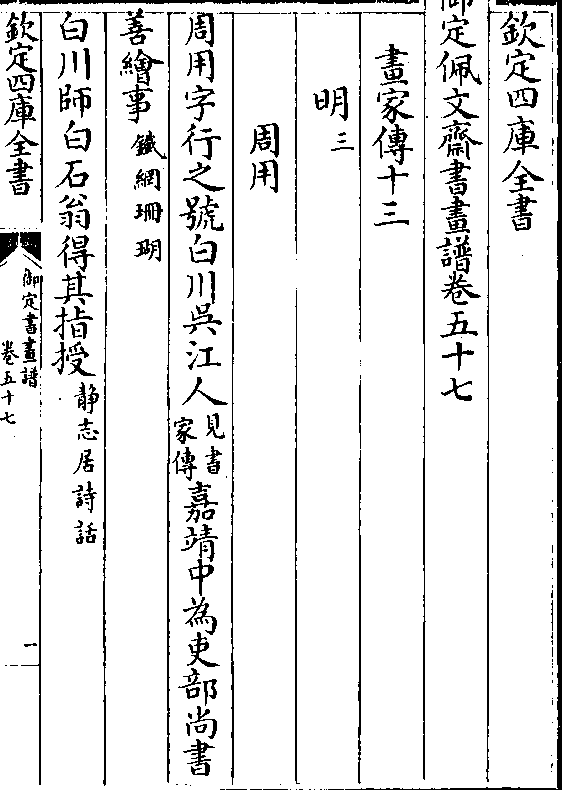 欽定四庫全書
御定佩文齋書畫譜卷五十七
畫家傳十三
明三
周用
周用字行之號白川吳江人見書家傳嘉靖中為吏部尚書
善繪事鐵網珊瑚
白川師白石翁得其指授静志居詩話
欽定四庫全書
御定書畫譜
卷五十七
一